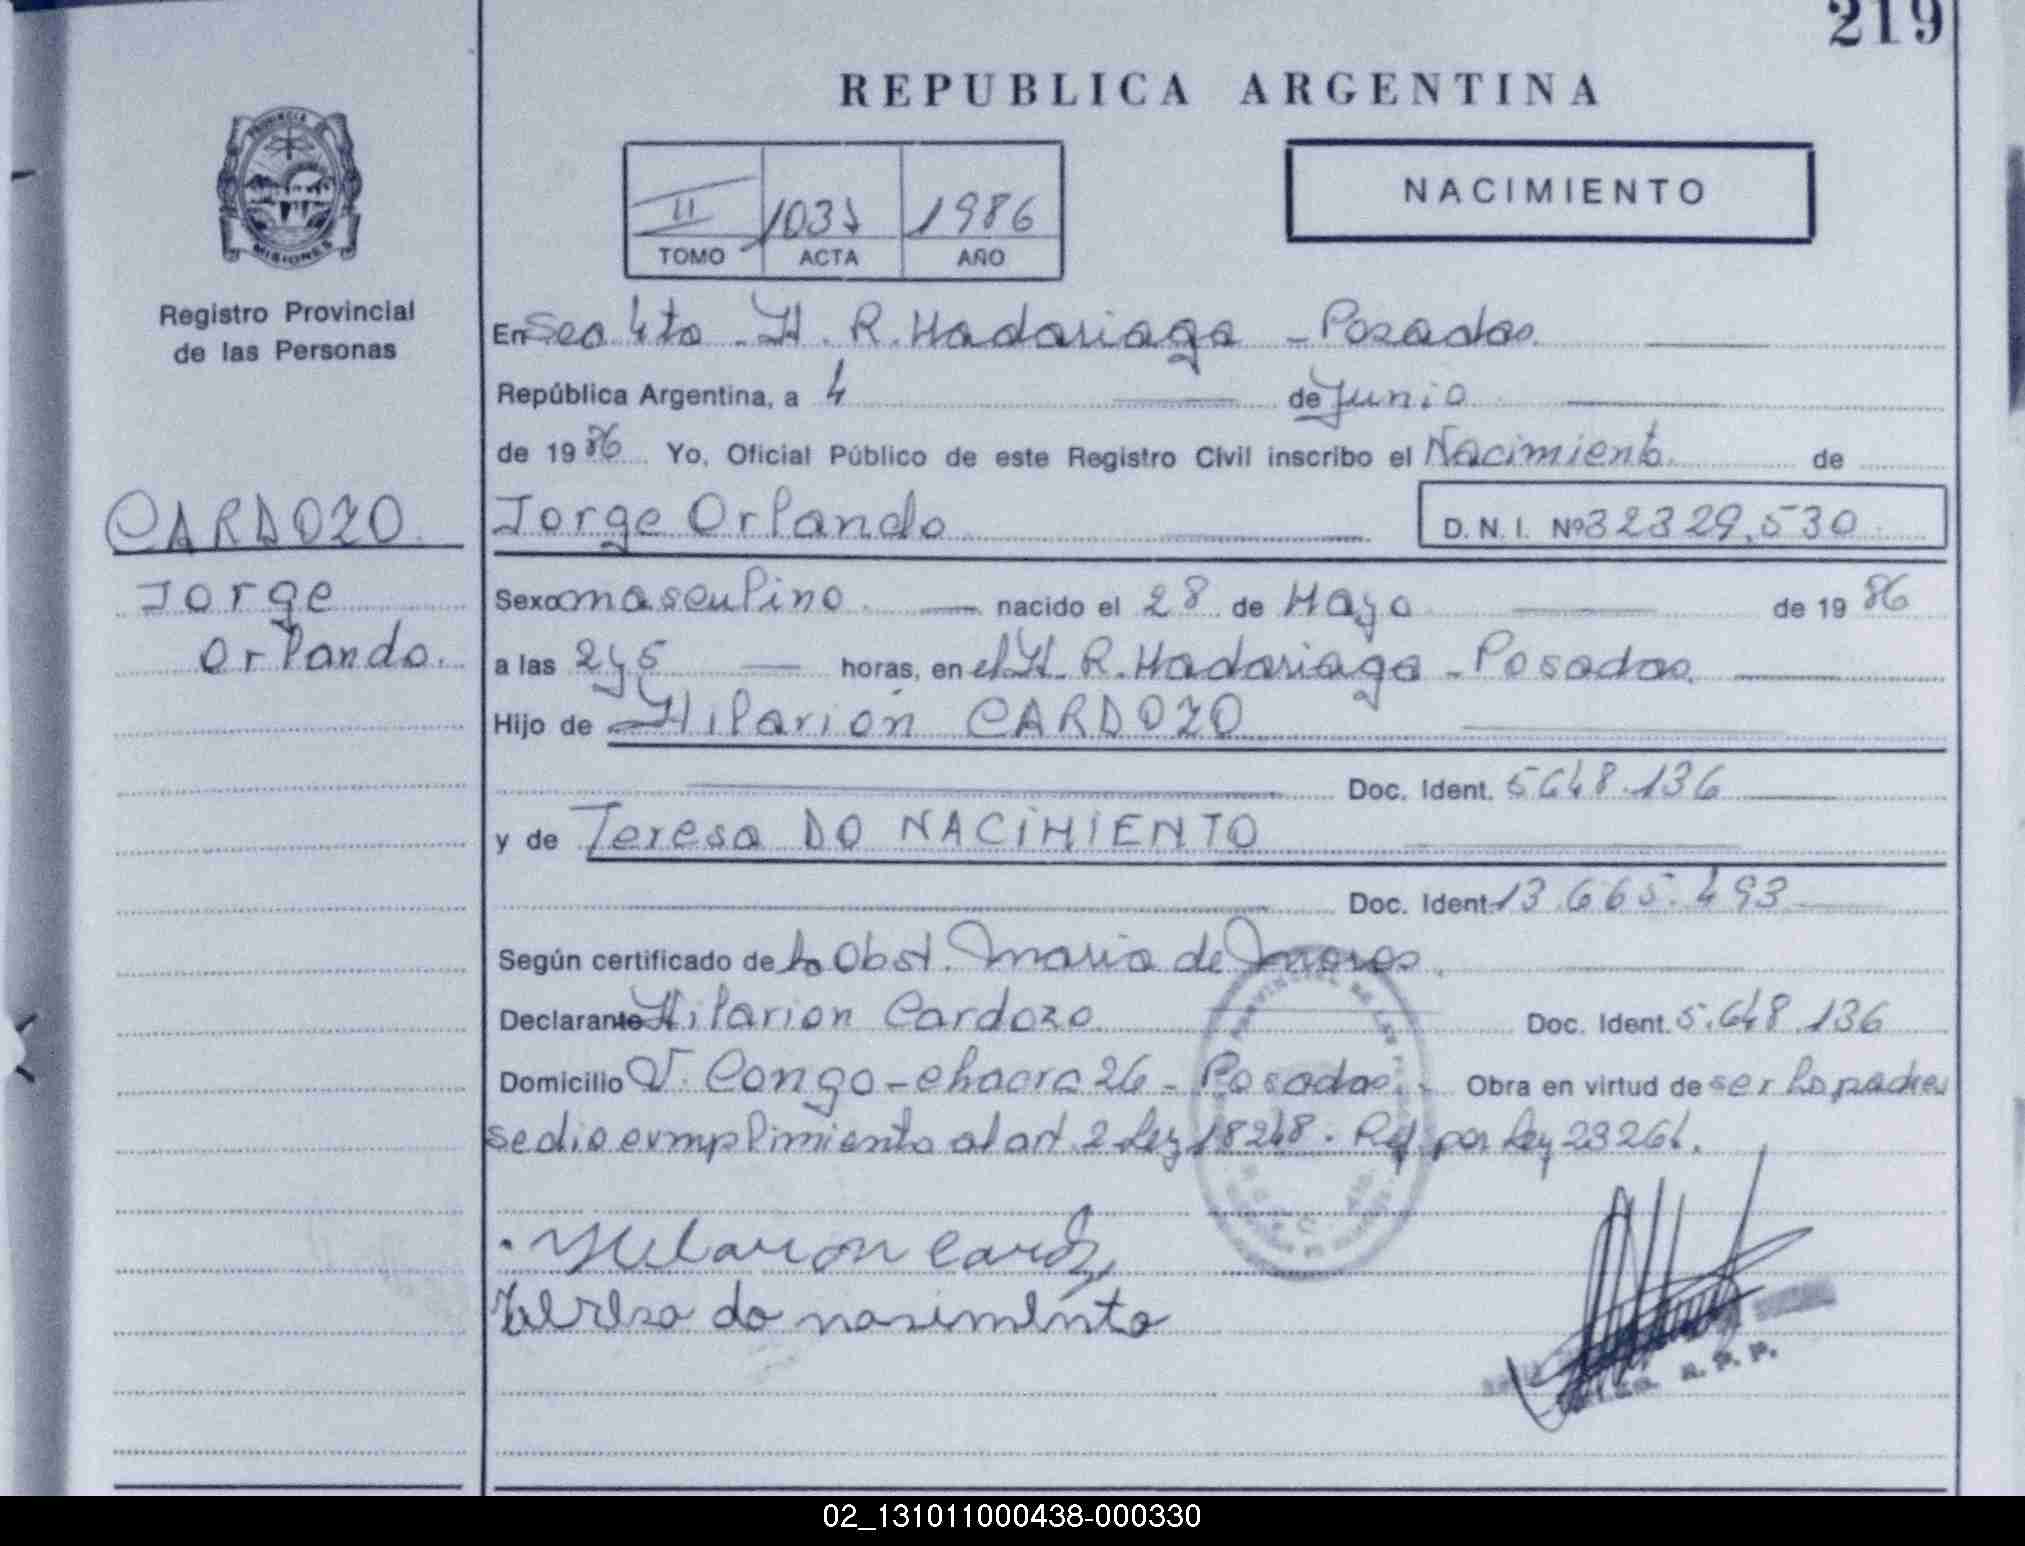 219
REPUBLICA ARGENTINA
PROVINCIA DE
MISIONES
Registro Provincial
de las Personas
II 1031 1986
TOMO ACTA AÑO
NACIMIENTO
En Sec 4ta - H. R. Madariaga - Posadas.
República Argentina, a 4 de Junio
de 1986 Yo, Oficial Público de este Registro Civil inscribo el Nacimiento de
CARDOZO.
Jorge Orlando D. N. I. Nº 32329.530
Jorge
Orlando.
Sexo masculino nacido el 28 de Mayo de 1986
a las 2 y 5 horas, en el H. R. Madariaga - Posadas.
Hijo de Hilarión CARDOZO
Doc. Ident. 5648.136
y de Teresa DO NACIMIENTO
Doc. Ident. 13.665.493
Según certificado de la Obst. Maria de
Declarante Hilarion Cardozo Doc. Ident. 5.648.136
Domicilio V. Congo - chacra 26 - Posadas. Obra en virtud de ser los padres
se dio cumplimiento al art. 2 Ley 18248. Ref. por Ley 23264.
Hilarion Cardoz
Teresa do nasimento
R. P. P.
02_131011000438-000330